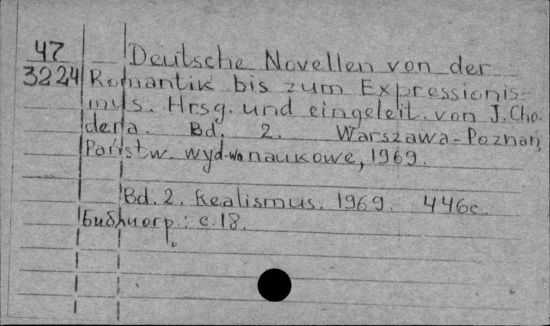 47 Deutsche Novellen von der
3224 Romantik bis zum Expressionis-
mus. Hrsg. und eingeleit. von J. Cho-
dera. Bd. 2. Warszawa-Poznań,
Państw. wyd-wo naukowe, 1969.
Bd. 2. Realismus. 1969. 446c.
Библиогр.: с. 18.